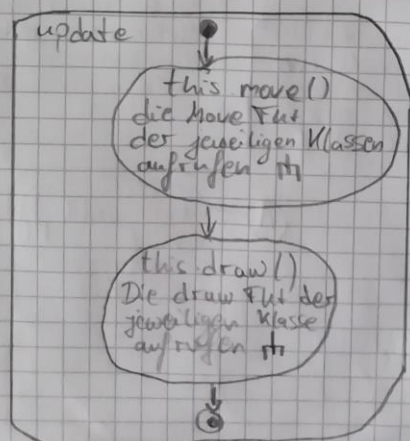 update
this move()
die Move Fkt
der jeweiligen Klassen
aufrufen
this.draw()
Die draw Fkt der
jeweiligen Klasse
aufrufen